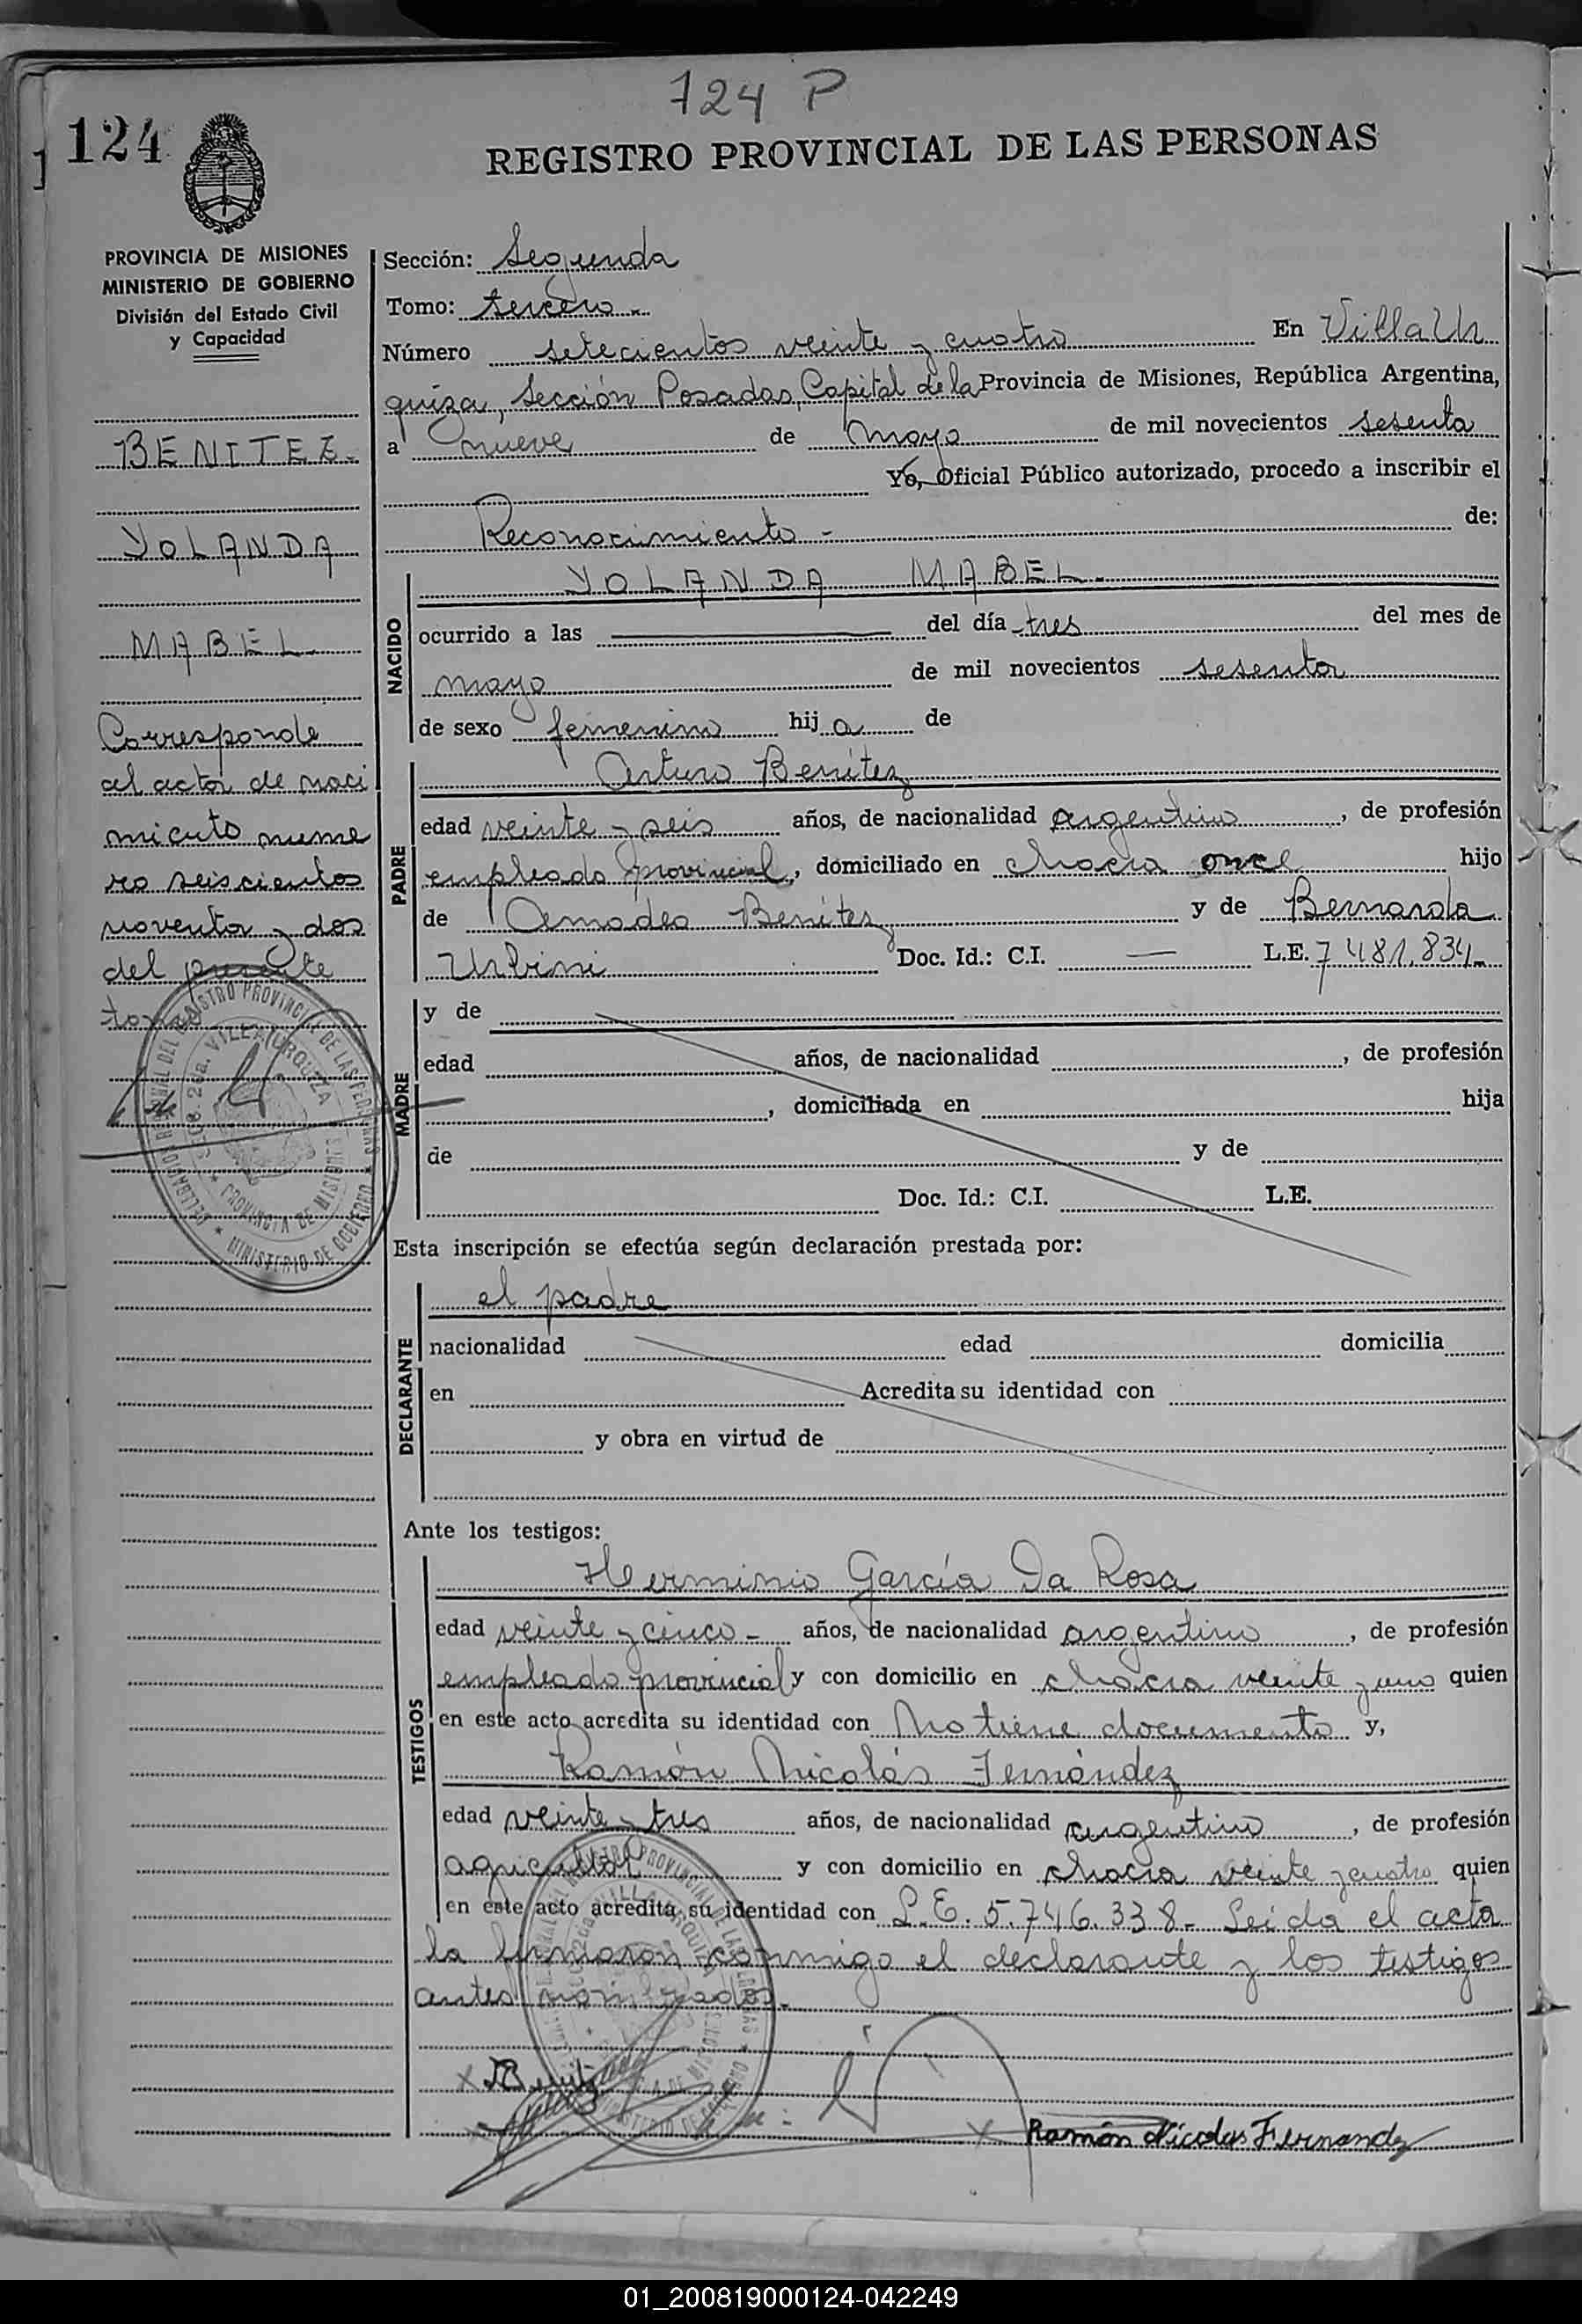 724 P
124
REGISTRO PROVINCIAL DE LAS PERSONAS
PROVINCIA DE MISIONES
MINISTERIO DE GOBIERNO
División del Estado Civil
y Capacidad
BENITEZ
YOLANDA
MABEL
Corresponde
al acta de naci
miento nume
ro seiscientos
noventa y dos
del presente
tomo
Sección: Segunda
Tomo: tercero
Número setecientos veinte y cuatro En Villa Ur
quiza, Sección Posadas, Capital de la Provincia de Misiones, República Argentina,
a nueve de mayo de mil novecientos sesenta
Yo, Oficial Público autorizado, procedo a inscribir el
Reconocimiento - de:
NACIDO
YOLANDA MABEL
ocurrido a las del día tres del mes de
mayo de mil novecientos sesenta
de sexo femenino hij a de
PADRE
Arturo Benítez
edad veinte y seis años, de nacionalidad argentino, de profesión
empleado provincial, domiciliado en chacra once hijo
de Amadeo Benítez y de Bernarda
Urbini Doc. Id.: C.I. — L.E. 7 481.834
MADRE
y de
edad años, de nacionalidad , de profesión
, domiciliada en hija
de y de
Doc. Id.: C.I. L.E.
Esta inscripción se efectúa según declaración prestada por:
DECLARANTE
el padre
nacionalidad edad domicilia
en Acredita su identidad con
y obra en virtud de
Ante los testigos:
TESTIGOS
Herminio García Da Rosa
edad veinte y cinco - años, de nacionalidad argentino, de profesión
empleado provincial y con domicilio en chacra veinte y uno quien
en este acto acredita su identidad con No tiene documento y,
Ramón Nicolás Fernández
edad veinte y tres años, de nacionalidad argentino, de profesión
agricultor y con domicilio en chacra veinte y cuatro quien
en este acto acredita su identidad con L.E. 5.746.338- Leída el acta
la firmaron conmigo el declarante y los testigos
antes nombrados.
Ramón Nicolas Fernandez
DELEGACION REGIONAL DEL REGISTRO PROVINCIAL DE LAS PERSONAS
SECC. 2da. VILLA URQUIZA
PROVINCIA DE MISIONES
MINISTERIO DE GOBIERNO
01_200819000124-042249